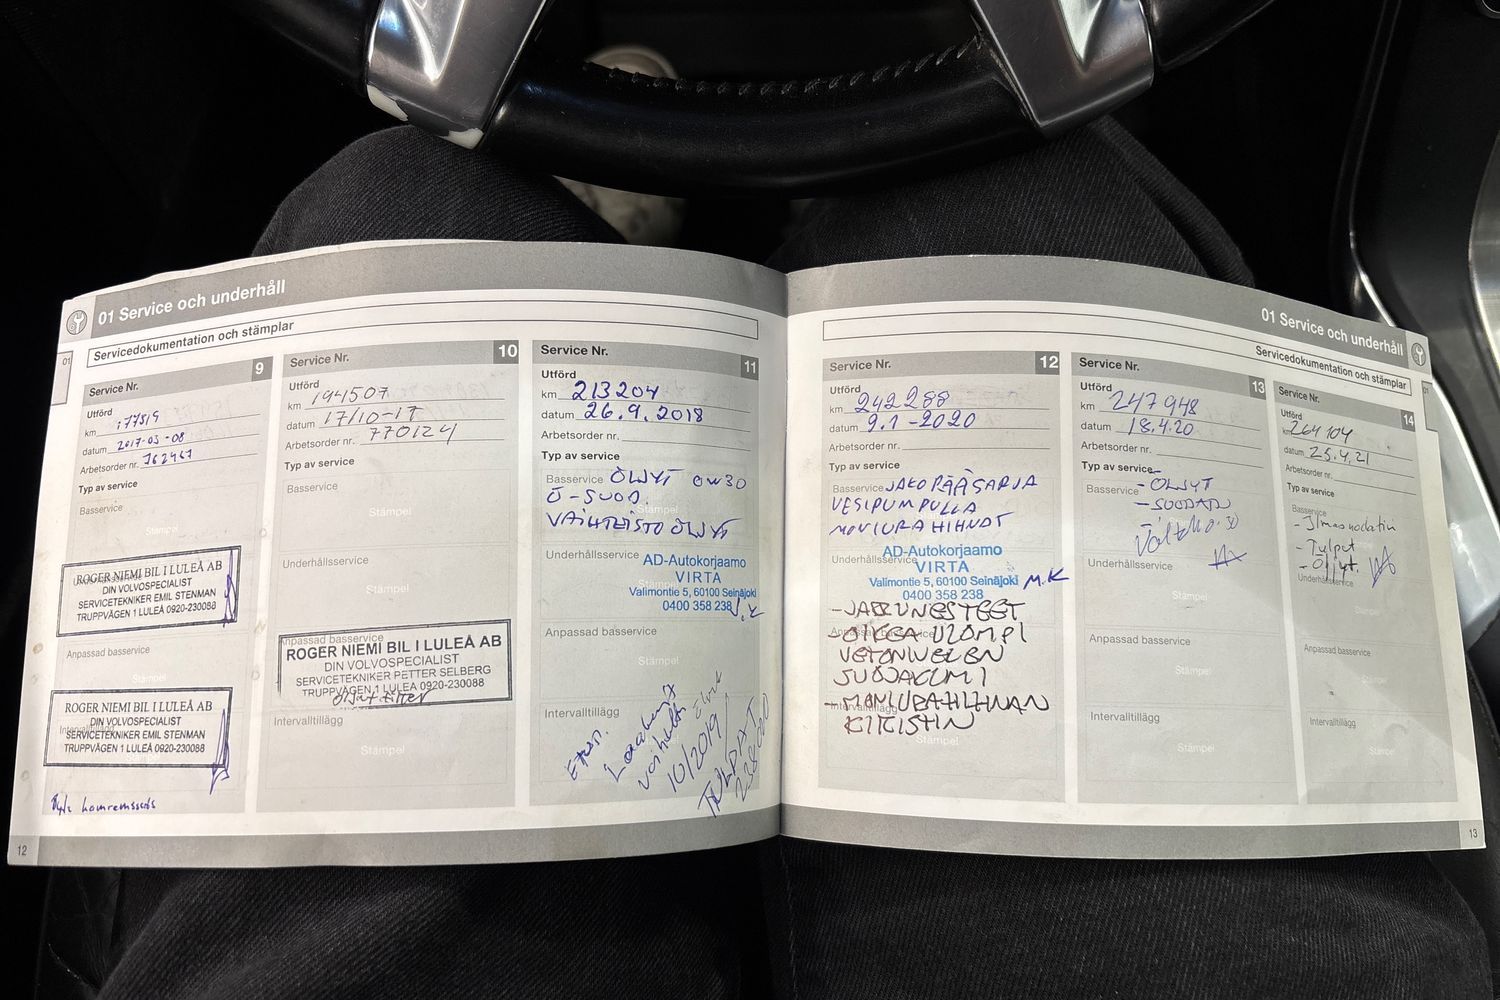 01 Service och underhåll
Servicedokumentation och stämplar
01
Service Nr. 9
Utförd
km 177519
datum 2017-03-08
Arbetsorder nr. 762467
Typ av service
Basservice
Stämpel
Underhållsservice
ROGER NIEMI BIL I LULEÅ AB
DIN VOLVOSPECIALIST
SERVICETEKNIKER EMIL STENMAN
TRUPPVÄGEN 1 LULEÅ 0920-230088
Anpassad basservice
Stämpel
Intervalltillägg
ROGER NIEMI BIL I LULEÅ AB
DIN VOLVOSPECIALIST
SERVICETEKNIKER EMIL STENMAN
TRUPPVÄGEN 1 LULEÅ 0920-230088
12
Service Nr. 10
Utförd
km 194507
datum 17/10-17
Arbetsorder nr. 770124
Typ av service
Basservice
Stämpel
Underhållsservice
Stämpel
Anpassad basservice
ROGER NIEMI BIL I LULEÅ AB
DIN VOLVOSPECIALIST
SERVICETEKNIKER PETTER SELBERG
TRUPPVÄGEN 1 LULEÅ 0920-230088
Intervalltillägg
Stämpel
Service Nr. 11
Utförd
km 213204
datum 26.9.2018
Arbetsorder nr.
Typ av service
Basservice ÖLJYT 0W30
Ö-SUOD.
Stämpel
VAIHTEISTO ÖLJYT
Underhållsservice
AD-Autokorjaamo
VIRTA
Stämpel
Valimontie 5, 60100 Seinäjoki
0400 358 238
Anpassad basservice
Stämpel
Intervalltillägg
10/2019
TULPAT
01 Service och underhåll
Servicedokumentation och stämplar
01
Service Nr. 12
Utförd
km 242288
datum 9.1-2020
Arbetsorder nr.
Typ av service
Basservice JAKOPÄÄSARJA
VESIPUMPULLA
MONIURAHIHNAT
Underhållsservice
AD-Autokorjaamo
VIRTA
Valimontie 5, 60100 Seinäjoki M.K
0400 358 238
-JARRUNESTEET
Anpassad basservice
VETONIVELEN
SUOJAKUMI
-MONIURAHIHNAN
Intervalltillägg
KIRISTIN
Stämpel
Service Nr. 13
Utförd
km 247948
datum 18.4.20
Arbetsorder nr.
Typ av service
Basservice
-ÖLJYT
-SUODATIN
Underhållsservice
Stämpel
Anpassad basservice
Stämpel
Intervalltillägg
Stämpel
Service Nr. 14
Utförd
km 264104
datum 25.4.21
Arbetsorder nr.
Typ av service
Basservice
-Ilmansuodatin
-Tulput
-Öljyt.
Underhållsservice
Stämpel
Anpassad basservice
Stämpel
Intervalltillägg
Stämpel
13